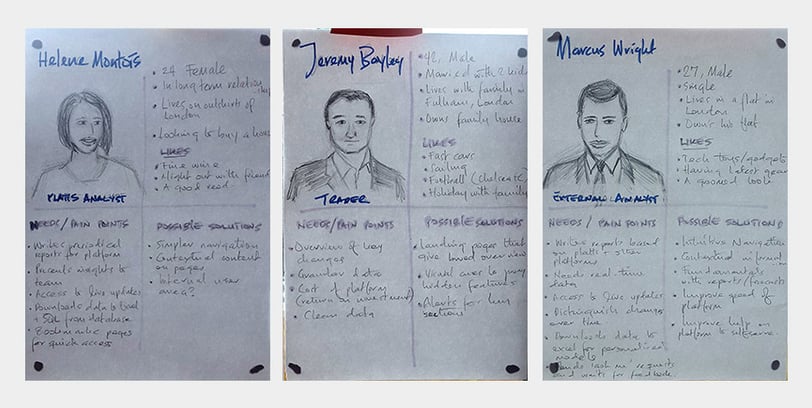 Helene Montoïs
24 Female
In long term relation
Lives on outskirts of
London
Looking to buy a house
LIKES
Fine wine
Night out with friend
A good read
PLATTS ANALYST
NEEDS/PAIN POINTS
Writes periodical
reports for platform
Presents insights to
team
Access to live updates
Downloads data to Excel
+ SQL from database
Bookmarks pages
for quick access
POSSIBLE SOLUTIONS
Simpler navigation
Contextual content
on pages
Internal user
area?
Jeremy Bayley
42, Male
Married with 2 kids
Lives with family in
Fulham, London
Owns family house
LIKES
Fast cars
Sailing
Football (Chelsea FC
Holiday with family
TRADER
NEEDS/PAIN POINTS
Overview of key
changes
Granular data
Cost of platform
(return on investment)
Clean data
POSSIBLE SOLUTIONS
Landing pages that
give broad overview
Visual
hidden features
Alerts for
sections
Marcus Wright
27, Male
Single
Lives in a flat in
London
Owns his flat
LIKES
Tech toys/gadgets
Having latest gear
A good book
EXTERNAL ANALYST
NEEDS / PAIN POINTS
Writes reports based
on platts + other
platforms
Needs real-time
data
Access to live updates
Distinguish changes
over time
Downloads data to
excel for personalised
models
Sends requests
and waits for feedback.
POSSIBLE SOLUTIONS
Intuitive Navigation
Contextual
Fundamentals
with reports/forecasts
Improve speed of
platform
Improve help on
platform to self serve.